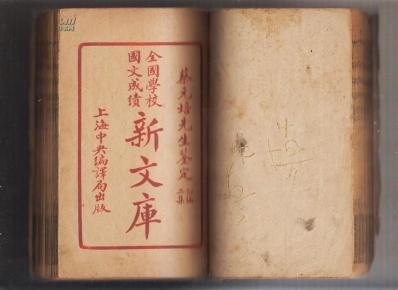 蔡元培先生鉴定
全國學校
國文成績
新文庫
上海中央編譯局出版